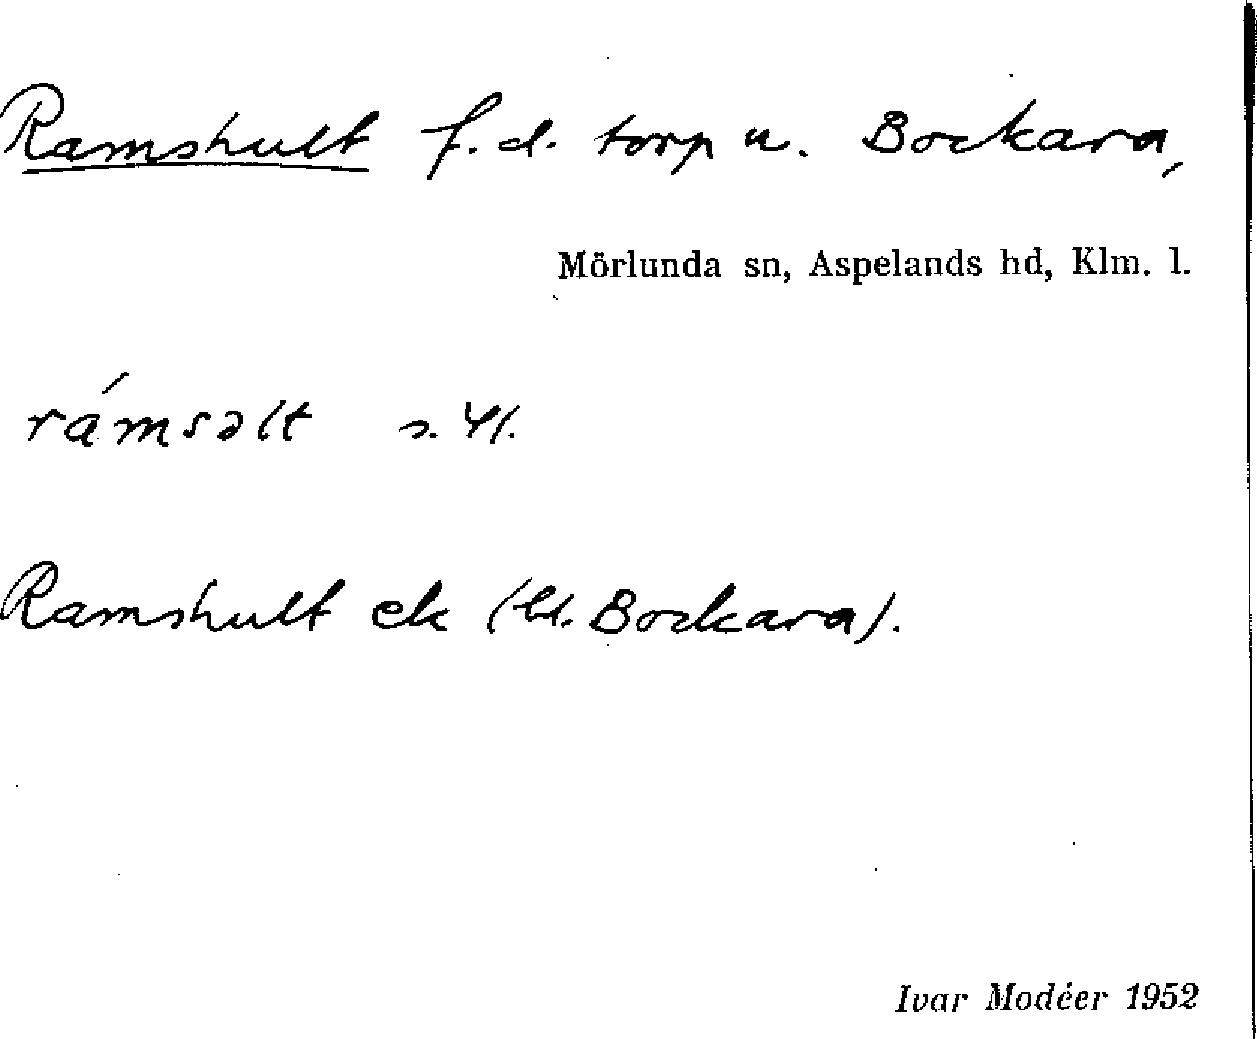 Ramshult f.d. torp u. Bockara,
Mörlunda sn, Aspelands hd, Klm. l.
rámsəlt
Ramshult ek (bl. Bockara).
Ivar Modéer 1952